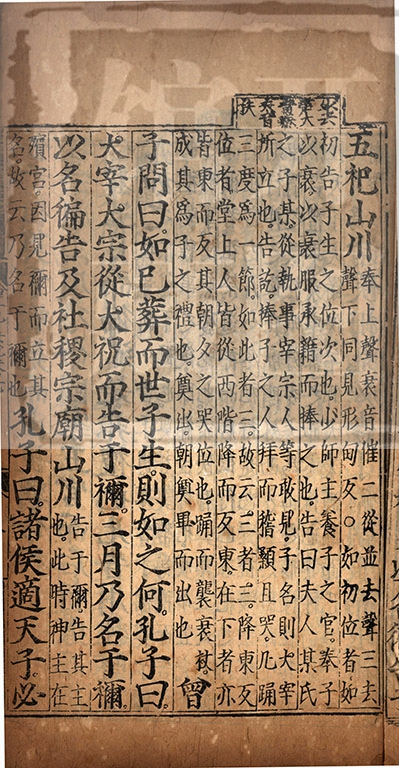 五祀山川奉上聲衰音催二從並去聲三去
聲下同見形甸反○如初位者如
初告子生之位次也少師主養子之官奉子
以衰以衰服承籍而捧之也告曰夫人某氏
之子某從執事宰宗人等敢見子名則大宰
所立也告訖捧子之人拜而稽顙且哭凡踊
三度爲一節如此者三故云三者三降東反
位者堂上人皆從西階降而反東在下者亦
皆東而反其朝夕之哭位也踊而襲衰杖
成其爲子之禮也奠出朝奠畢而出也曾
子問曰如已葬而世子生則如之何孔子曰
大宰大宗從大祝而告于禰三月乃名于禰
以名徧告及社稷宗廟山川告于禰告其主
也此時神主在
殯宮因見禰而立其
名故云乃名于禰也孔子曰諸侯適天子必